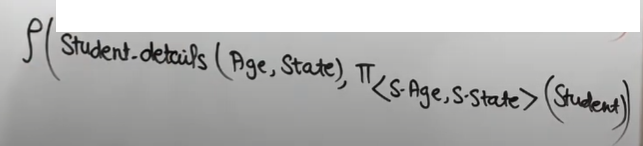 ρ(Student-details (Age, State), π<S-Age, S-State> (Student))